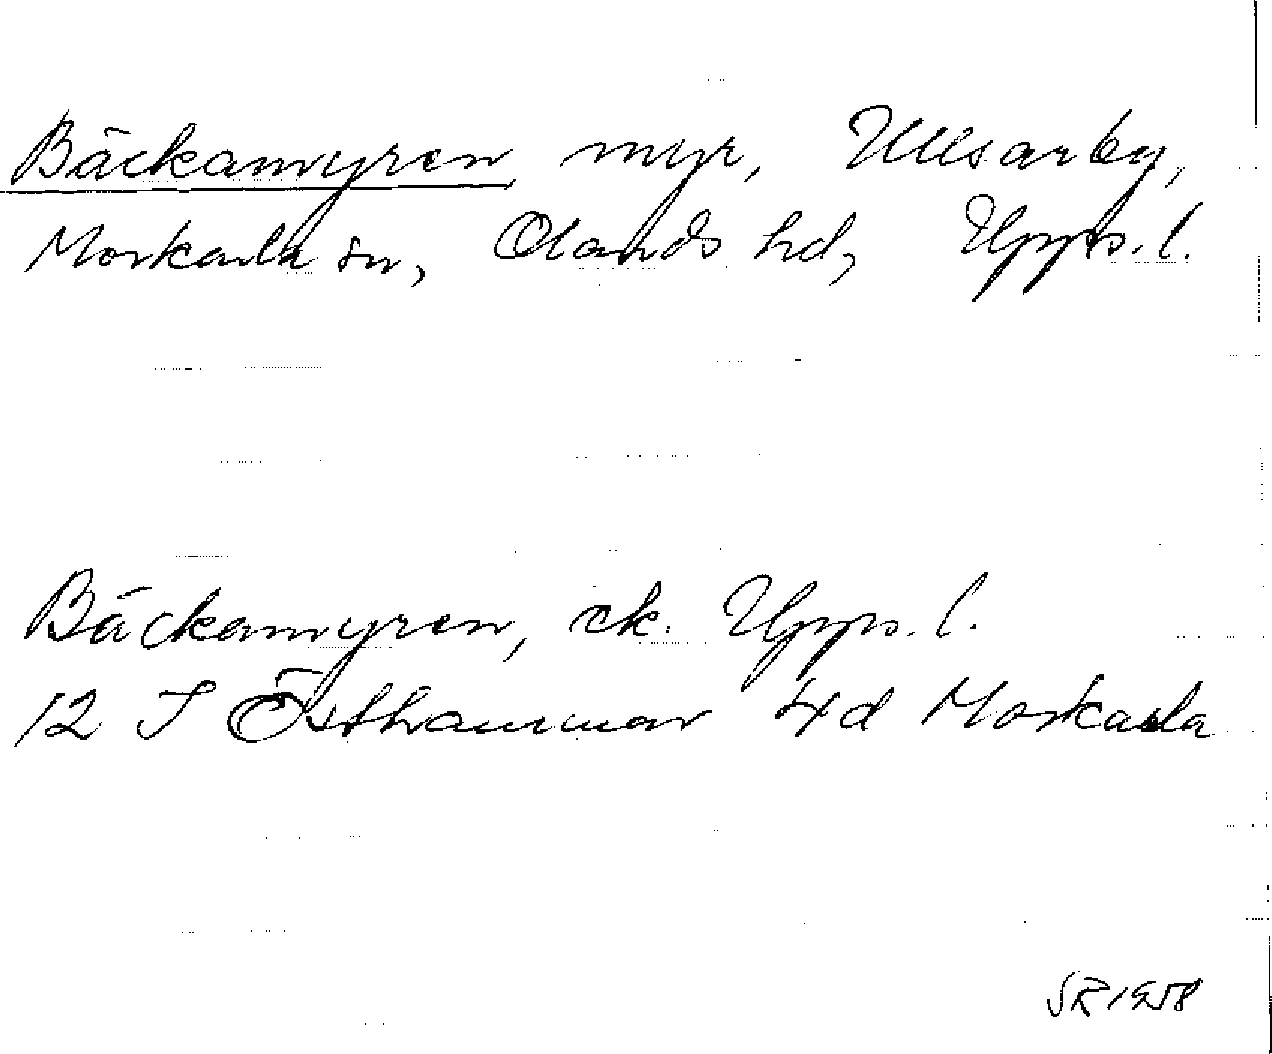 Bäckamyren myr, Ullsarby,
Morkarla sn, Olands hd, Upps. l.
Bäckamyren, ek. Upps. l.
12 I Östhammar 4d Morkarla
SR 1958